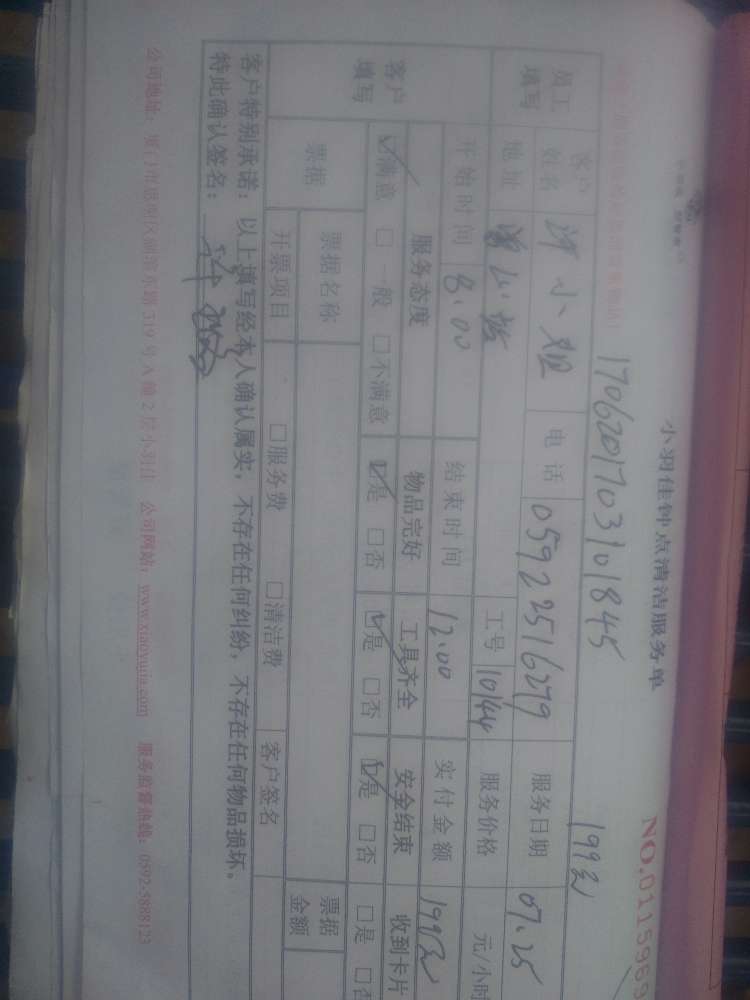 小羽佳钟点清洁服务单
NO.0115969
1706201703101845 199元
员工填写 客户姓名 小姐 电话 05922516279 服务日期 07.25
地址 工号 10144 服务价格 元/小时
开始时间 8:00 结束时间 12:00 实付金额 199元
客户填写 服务态度 物品完好 工具齐全 安全结束 收到卡片
☑满意 □一般 □不满意 ☑是 □否 ☑是 □否 ☑是 □否 □是 □否
票据 票据名称 票据金额
开票项目 □服务费 □清洁费 客户签名
客户特别承诺：以上填写经本人确认属实，不存在任何纠纷，不存在任何物品损坏。
特此确认签名：
公司地址：厦门市思明区 319号A幢2层小羽佳 公司网站：www.xiaoyujia.com 服务监督热线：0592-5888123